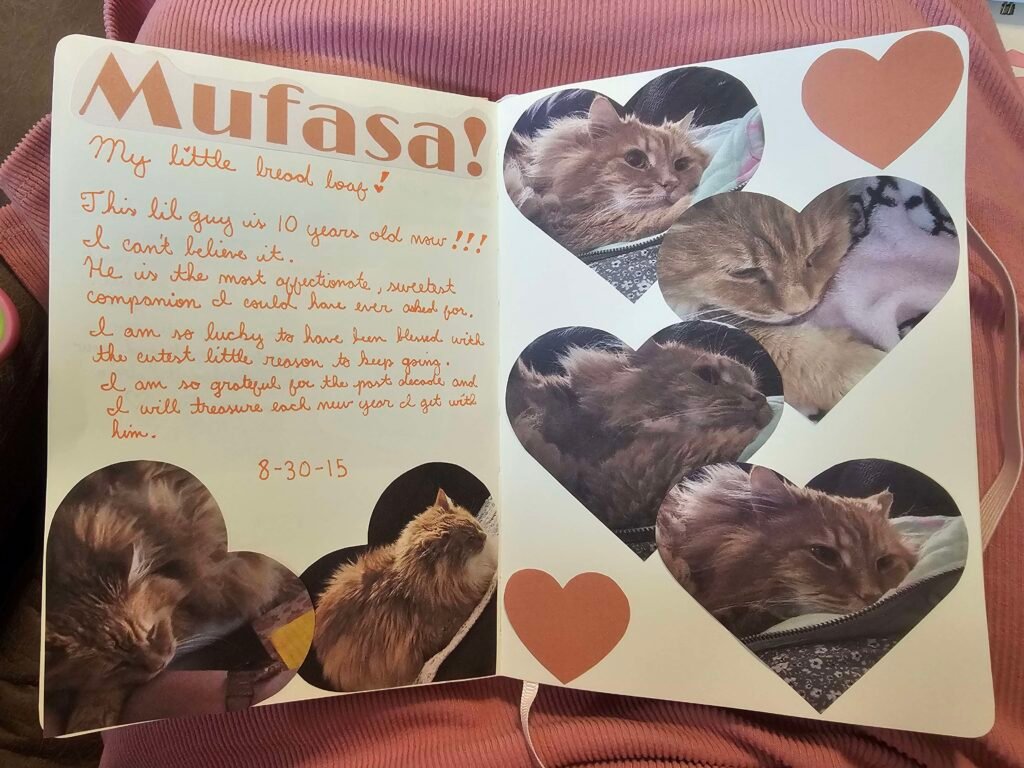 Mufasa!
My little bread loaf!
This lil guy is 10 years old now!!!
I can't believe it.
He is the most affectionate, sweetest
companion I could have ever asked for.
I am so lucky to have been blessed with
the cutest little reason to keep going.
I am so grateful for the past decade and
I will treasure each new year I get with
him.
8-30-15